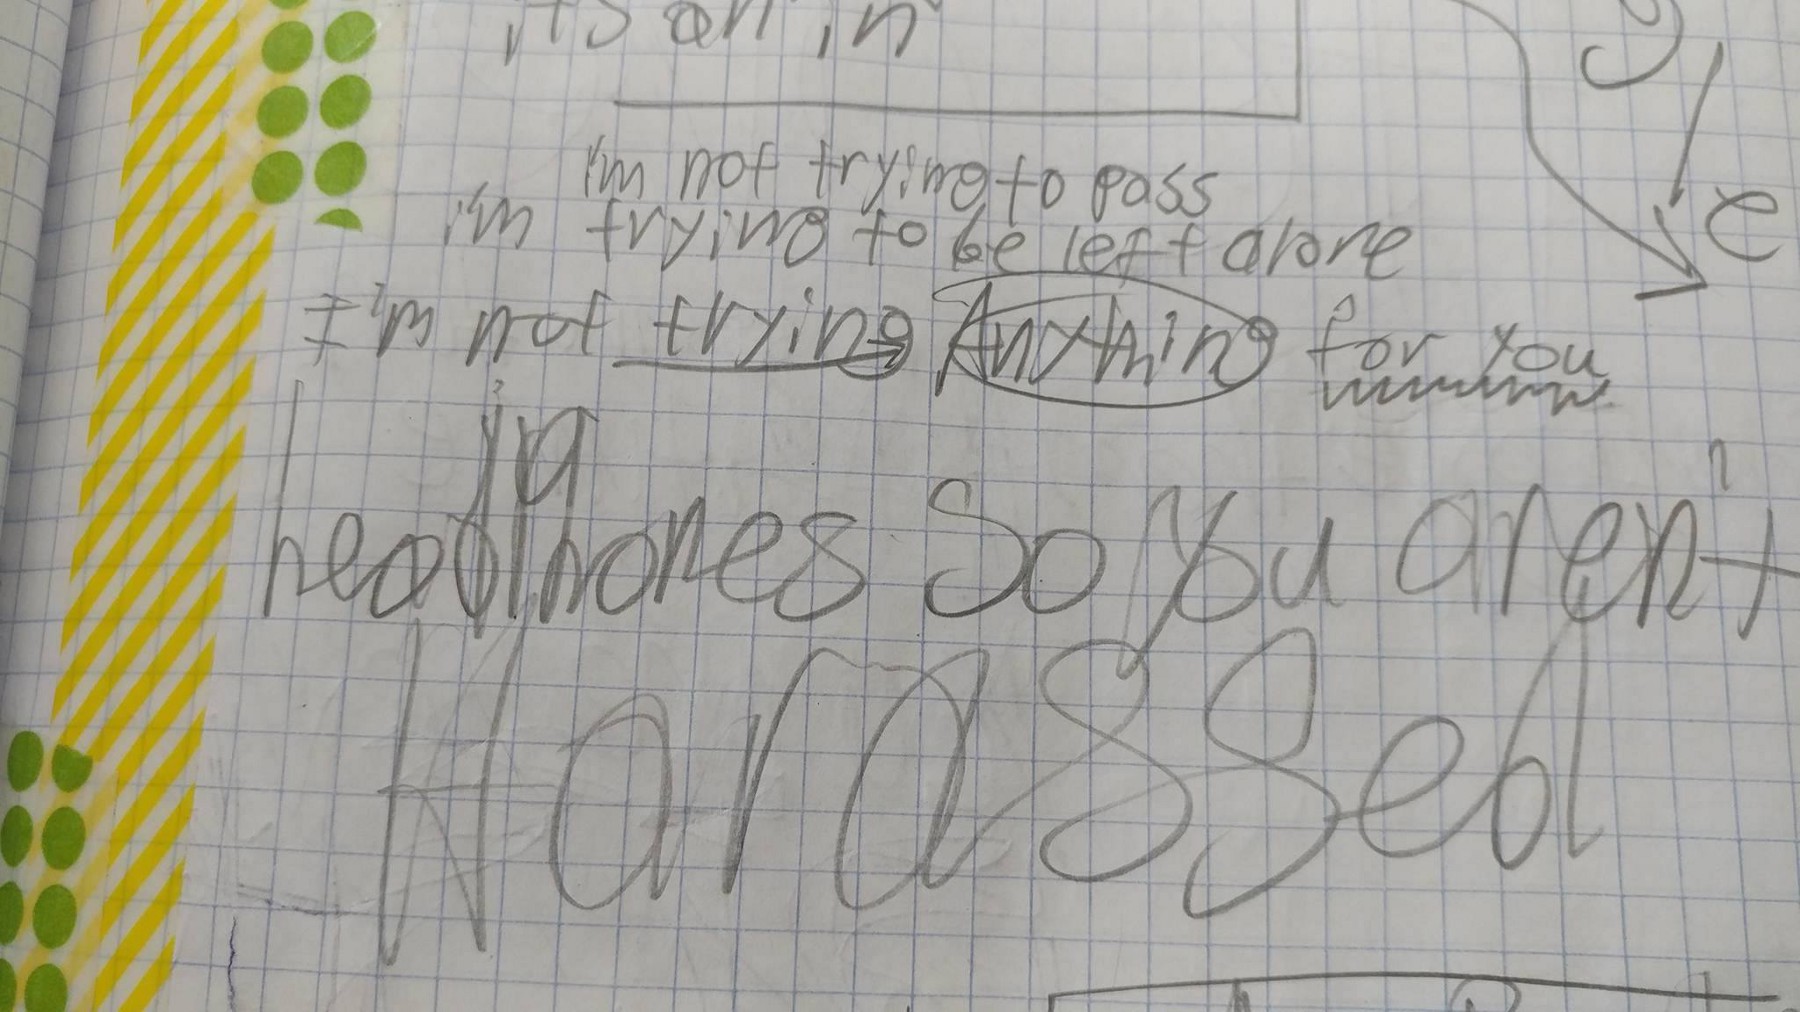 it's all in
i'm not trying to pass
i'm trying to be left alone
I'm not trying Anything for you
in
headphones so you aren't
Harassed
e